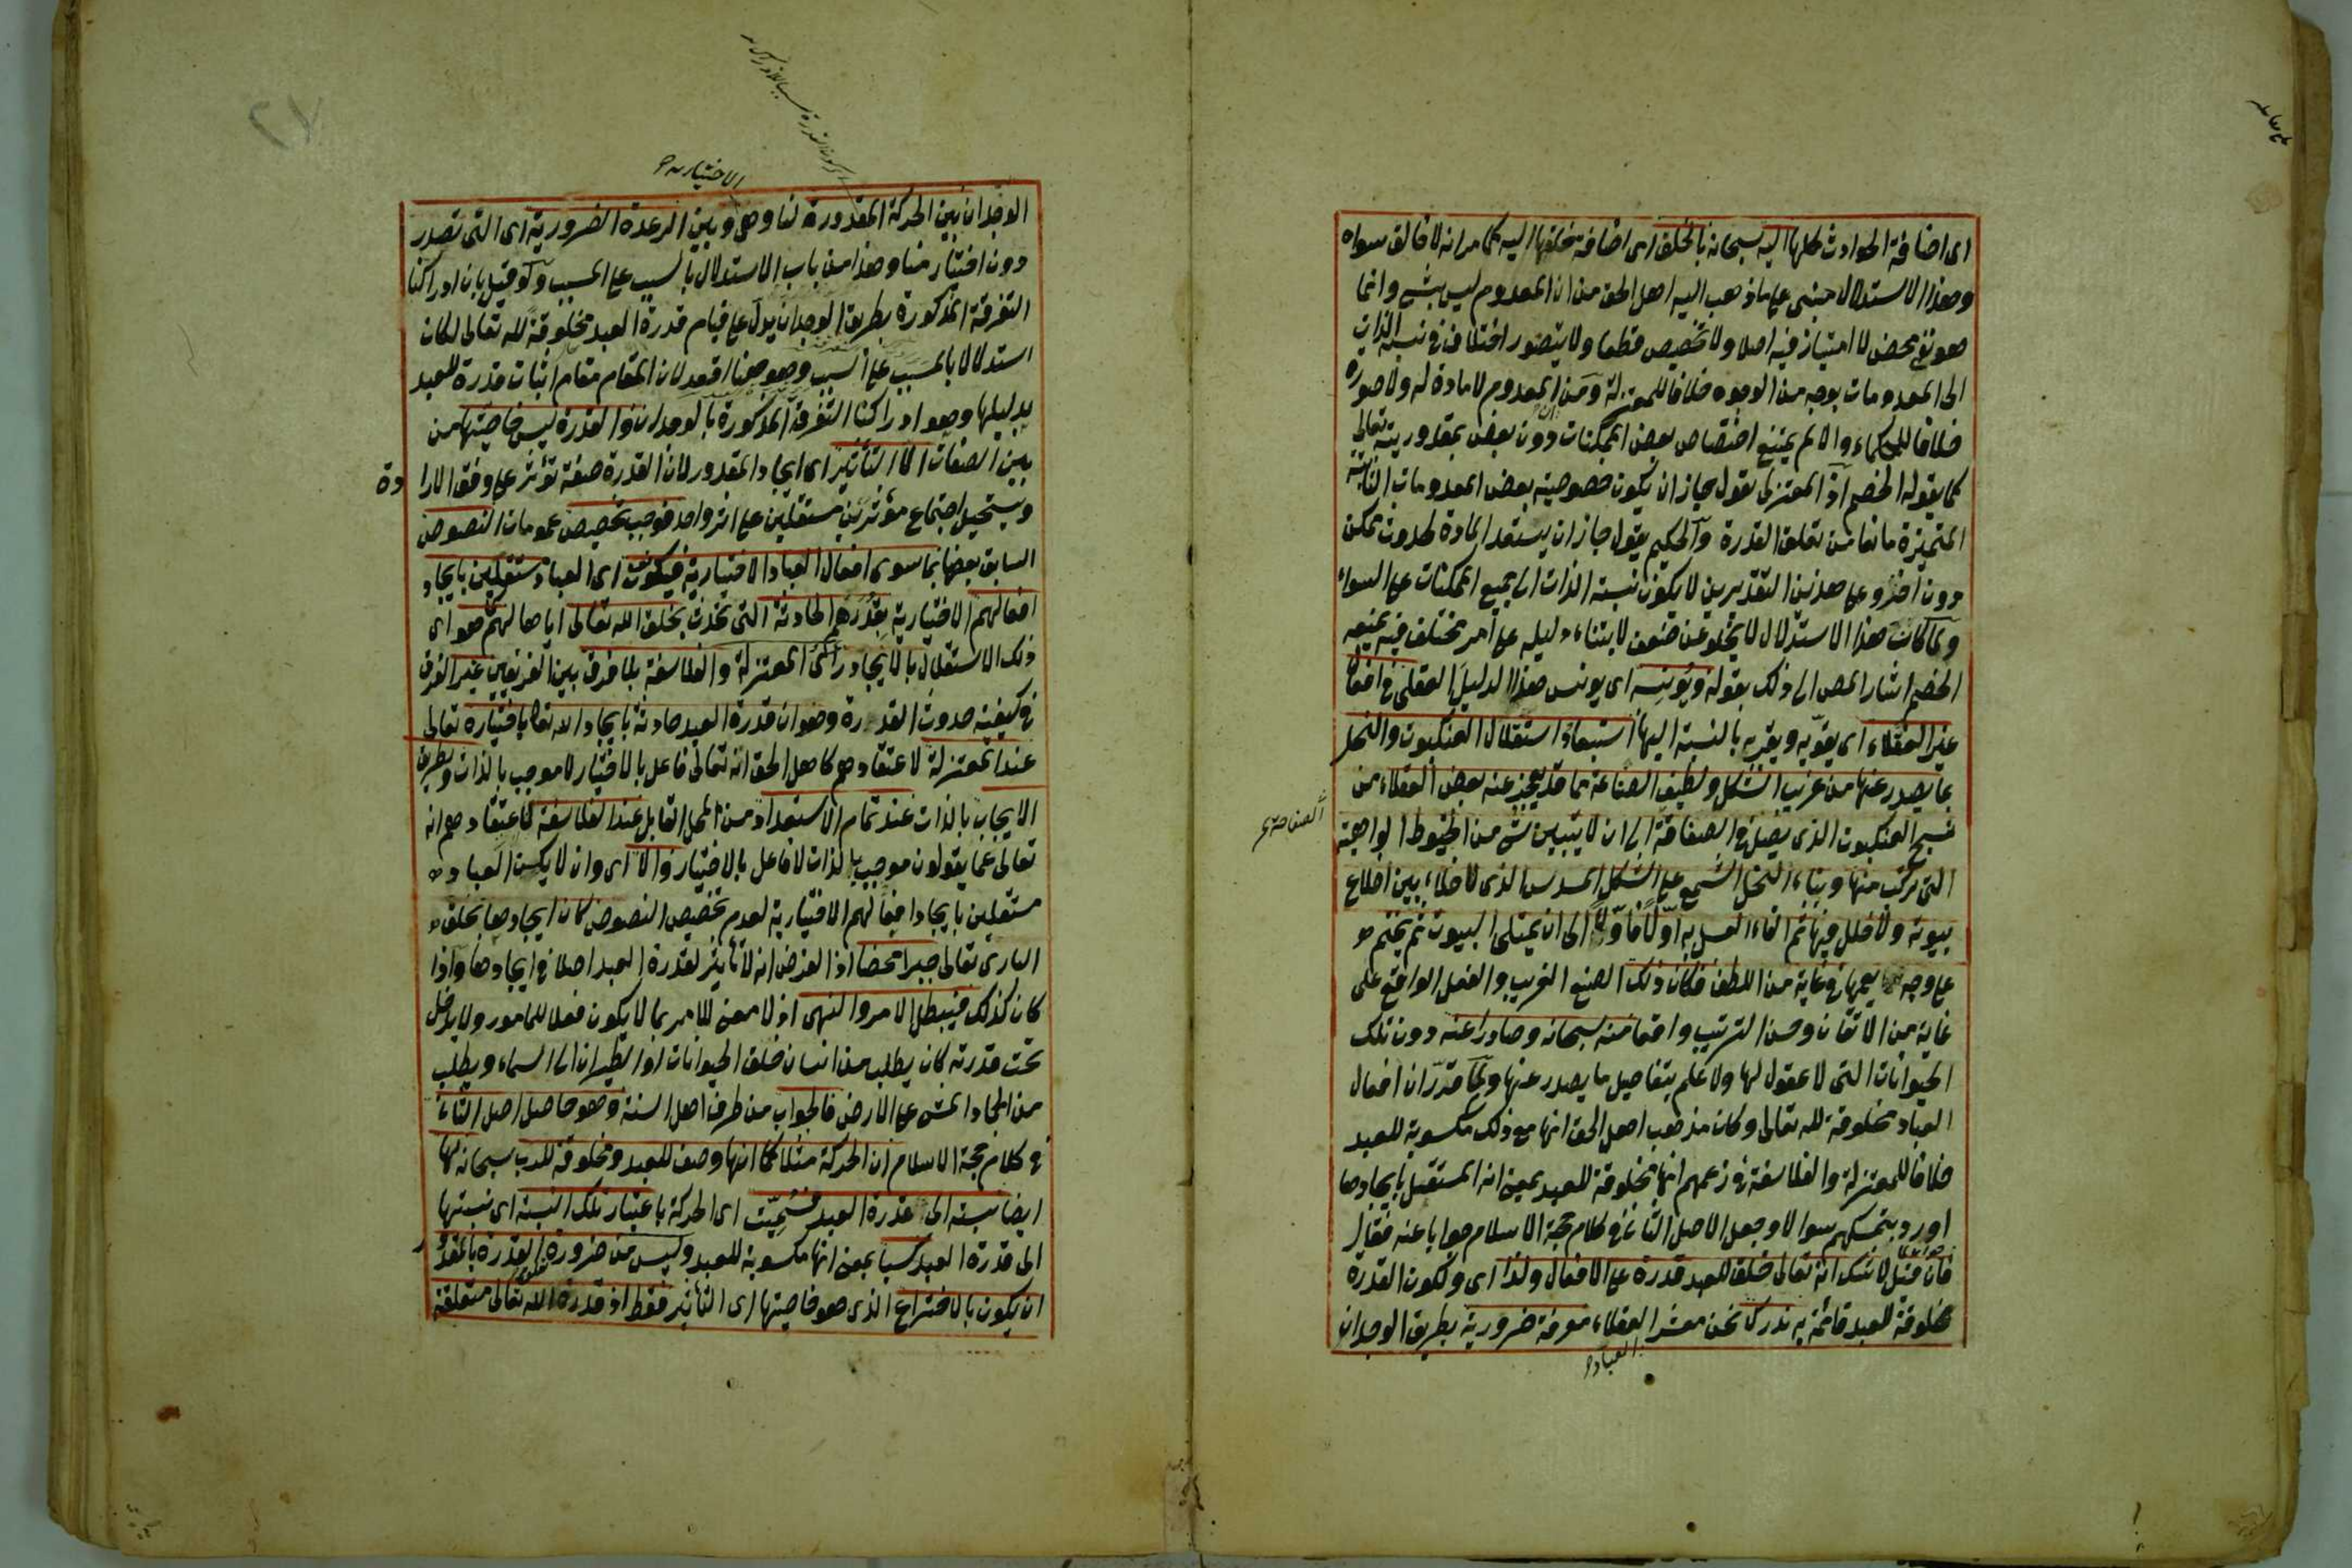 اى اضافة الحوادث كلها اليه سبحانه بالخلق اى اضافة خلقها اليه كما مر انه لا خالق سواه
وهذا الاستدلال مبنى على ما ذهب اليه اهل الحق من ان المعدوم ليس بشئ وانما
هو نفى محض لا امتياز فيه اصلا ولا تخصيص قطعا ولا يتصور اختلاف فى نسبة الذات
الى المعدومات بوجه من الوجوه خلافا للمعتزلة ومن ان المعدوم لا مادة له ولا صورة
خلافا للحكماء والا لم يمتنع اختصاص بعض الممكنات دون بعض بمقدوريته تعالى
كما يقوله الخصم اذ المعتزلى يقول جاز ان يكون خصوصية بعض المعدومات الثابتة
المتميزة مانعا من تعلق القدرة والحكيم يقول جاز ان يستعد المادة لحدوث ممكن
دون اخر وعلى هذين التقديرين لا يكون نسبة الذات الى جميع الممكنات على السواء
ولما كان هذا الاستدلال لا يخلو عن ضعف لابتناء دليله على أمر مختلف فيه يمنعه
الخصم اشار المص الى ذلك بقوله ويؤنسه اى يونس هذا الدليل العقلى فى افعال
غير العقلاء اى يقويه ويقربه بالنسبة اليها استبعاد استقلال العنكبوت والنحل
بما يصدر عنها من غريب الشكل ولطيف الصناعة مما قد يعجز عنه بعض العقلاء من
نسج العنكبوت الذى يصل فى الصفاقة الى ان لا يتبين شئ من الخيوط الواهية
الصفاقة
التى تركب منها وبناء النحل الشمع على الشكل المسدس الذى لا خلاء بين اضلاع
بيوته ولا خلل فيها ثم القاء العسل به اولا فاولا الى ان يمتلى البيوت ثم يختم
على وجه يعمها فى غاية من اللطف فكان ذلك الصنع الغريب والفعل الواقع على
غاية من الاتقان وحسن الترتيب واقعا منه سبحانه وصادرا عنه دون تلك
الحيوانات التى لا عقول لها ولا علم بتفاصيل ما يصدر عنها ولما قدر ان افعال
العباد مخلوقة لله تعالى وكان مذهب اهل الحق انها مع ذلك مكسوبة للعبد
خلافا للمعتزلة والفلاسفة فى زعمهم انها مخلوقة للعبد بمعنى انه المستقل بايجادها
اورد بتمسكهم سوالا وجعل الاصل الثانى فى كلام حجة الاسلام جوابا عنه فقال
فان قيل لا شك انه تعالى خلق للعبد قدرة على الافعال ولذا اى ولكون القدرة
مخلوقة للعبد قائمة به ندرك نحن معشر العقلاء معرفة ضرورية بطريق الوجدان
العباد
الاختيارية
الوجدان بين الحركة المقدورة لنا وهى وبين الرعدة الضرورية اى التى تصدر
دون اختيار منا وهذا من باب الاستدلال بالسبب على المسبب ولو قيل بان ادراكنا
التفرقة المذكورة بطريق الوجدان يدل على قيام قدرة العبد مخلوقة لله تعالى لكان
استدلالا بالمسبب على السبب وهو هنا اقعد لان المقام مقام اثبات قدرة للعبد
بدليلها وهو ادراكنا التفرقة المذكورة بالوجدان والقدرة ليس خاصيتها من
بين الصفات الا التأثير اى ايجاد المقدور لان القدرة صفة تؤثر على وفق الارادة
ويستحيل اجتماع مؤثرين مستقلين على اثر واحد فوجب تخصيص عمومات النصوص
السابق بعضها بما سوى افعال العباد الاختيارية فيكون اى العباد مستقلين بايجاد
افعالهم الاختيارية بقدرهم الحادثة التى تحدث بخلق الله تعالى اياها لهم كما هو اى
ذلك الاستقلال بالايجاد رأى المعتزلة والفلاسفة بلا فرق بين الفريقين غير الفرق
فى كيفية حدوث القدرة وهو ان قدرة العبد حادثة بايجاد الله تعالى باختياره تعالى
عند المعتزلة لاعتقادهم كاهل الحق انه تعالى فاعل بالاختيار لا موجب بالذات وبطريق
الايجاب بالذات عند تمام الاستعداد من المحل القابل عند الفلاسفة لاعتقادهم انه
تعالى عما يقولون موجب بالذات لا فاعل بالاختيار والا اى وان لا يكن العباد
مستقلين بايجاد افعالهم الاختيارية لعدم تخصيص النصوص كان ايجادها بخلق
البارى تعالى جبرا محضا اذ الفرض انه لا تأثير لقدرة العبد اصلا فى ايجادها واذا
كان كذلك فيبطل الامر والنهى اذ لا معنى للامر بما لا يكون فعلا للمامور ولا يدخل
تحت قدرته كان يطلب من انسان خلق الحيوانات او الطيران الى السماء ويطلب
من الجماد المشى على الارض فالجواب من طرف اهل السنة وهو حاصل اصل الثانى
فى كلام حجة الاسلام ان الحركة مثلا كما انها وصف للعبد ومخلوقة للرب سبحانه لها
ايضا نسبة الى قدرة العبد فسميت اى الحركة باعتبار تلك النسبة اى نسبتها
الى قدرة العبد كسبا بمعنى انها مكسوبة للعبد وليس من ضرورة القدرة بالمقدور
ان يكون بالاختراع الذى هو خاصيتها اى التأثير فقط اذ قدرة الله تعالى متعلقة